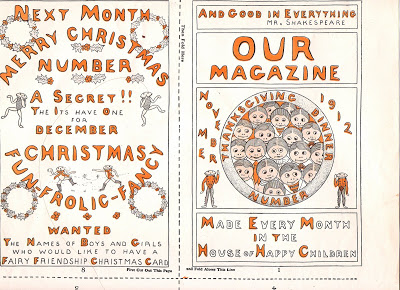 Next Month
Merry Christmas
Number
A Secret!!
The Its Have One
for
December
Christmasy
Fun-Frolic-Fancy
Wanted
The Names of Boys and Girls
who would like to have a
Fairy Friendship Christmas Card
8
First Cut Out This Page
Then Fold Here
And Good in Everything
Mr. Shakespeare
Our
Magazine
November 1912
Thanksgiving Dinner
Number
Made Every Month
in the
House of Happy Children
and Fold Along This Line
1
5
4